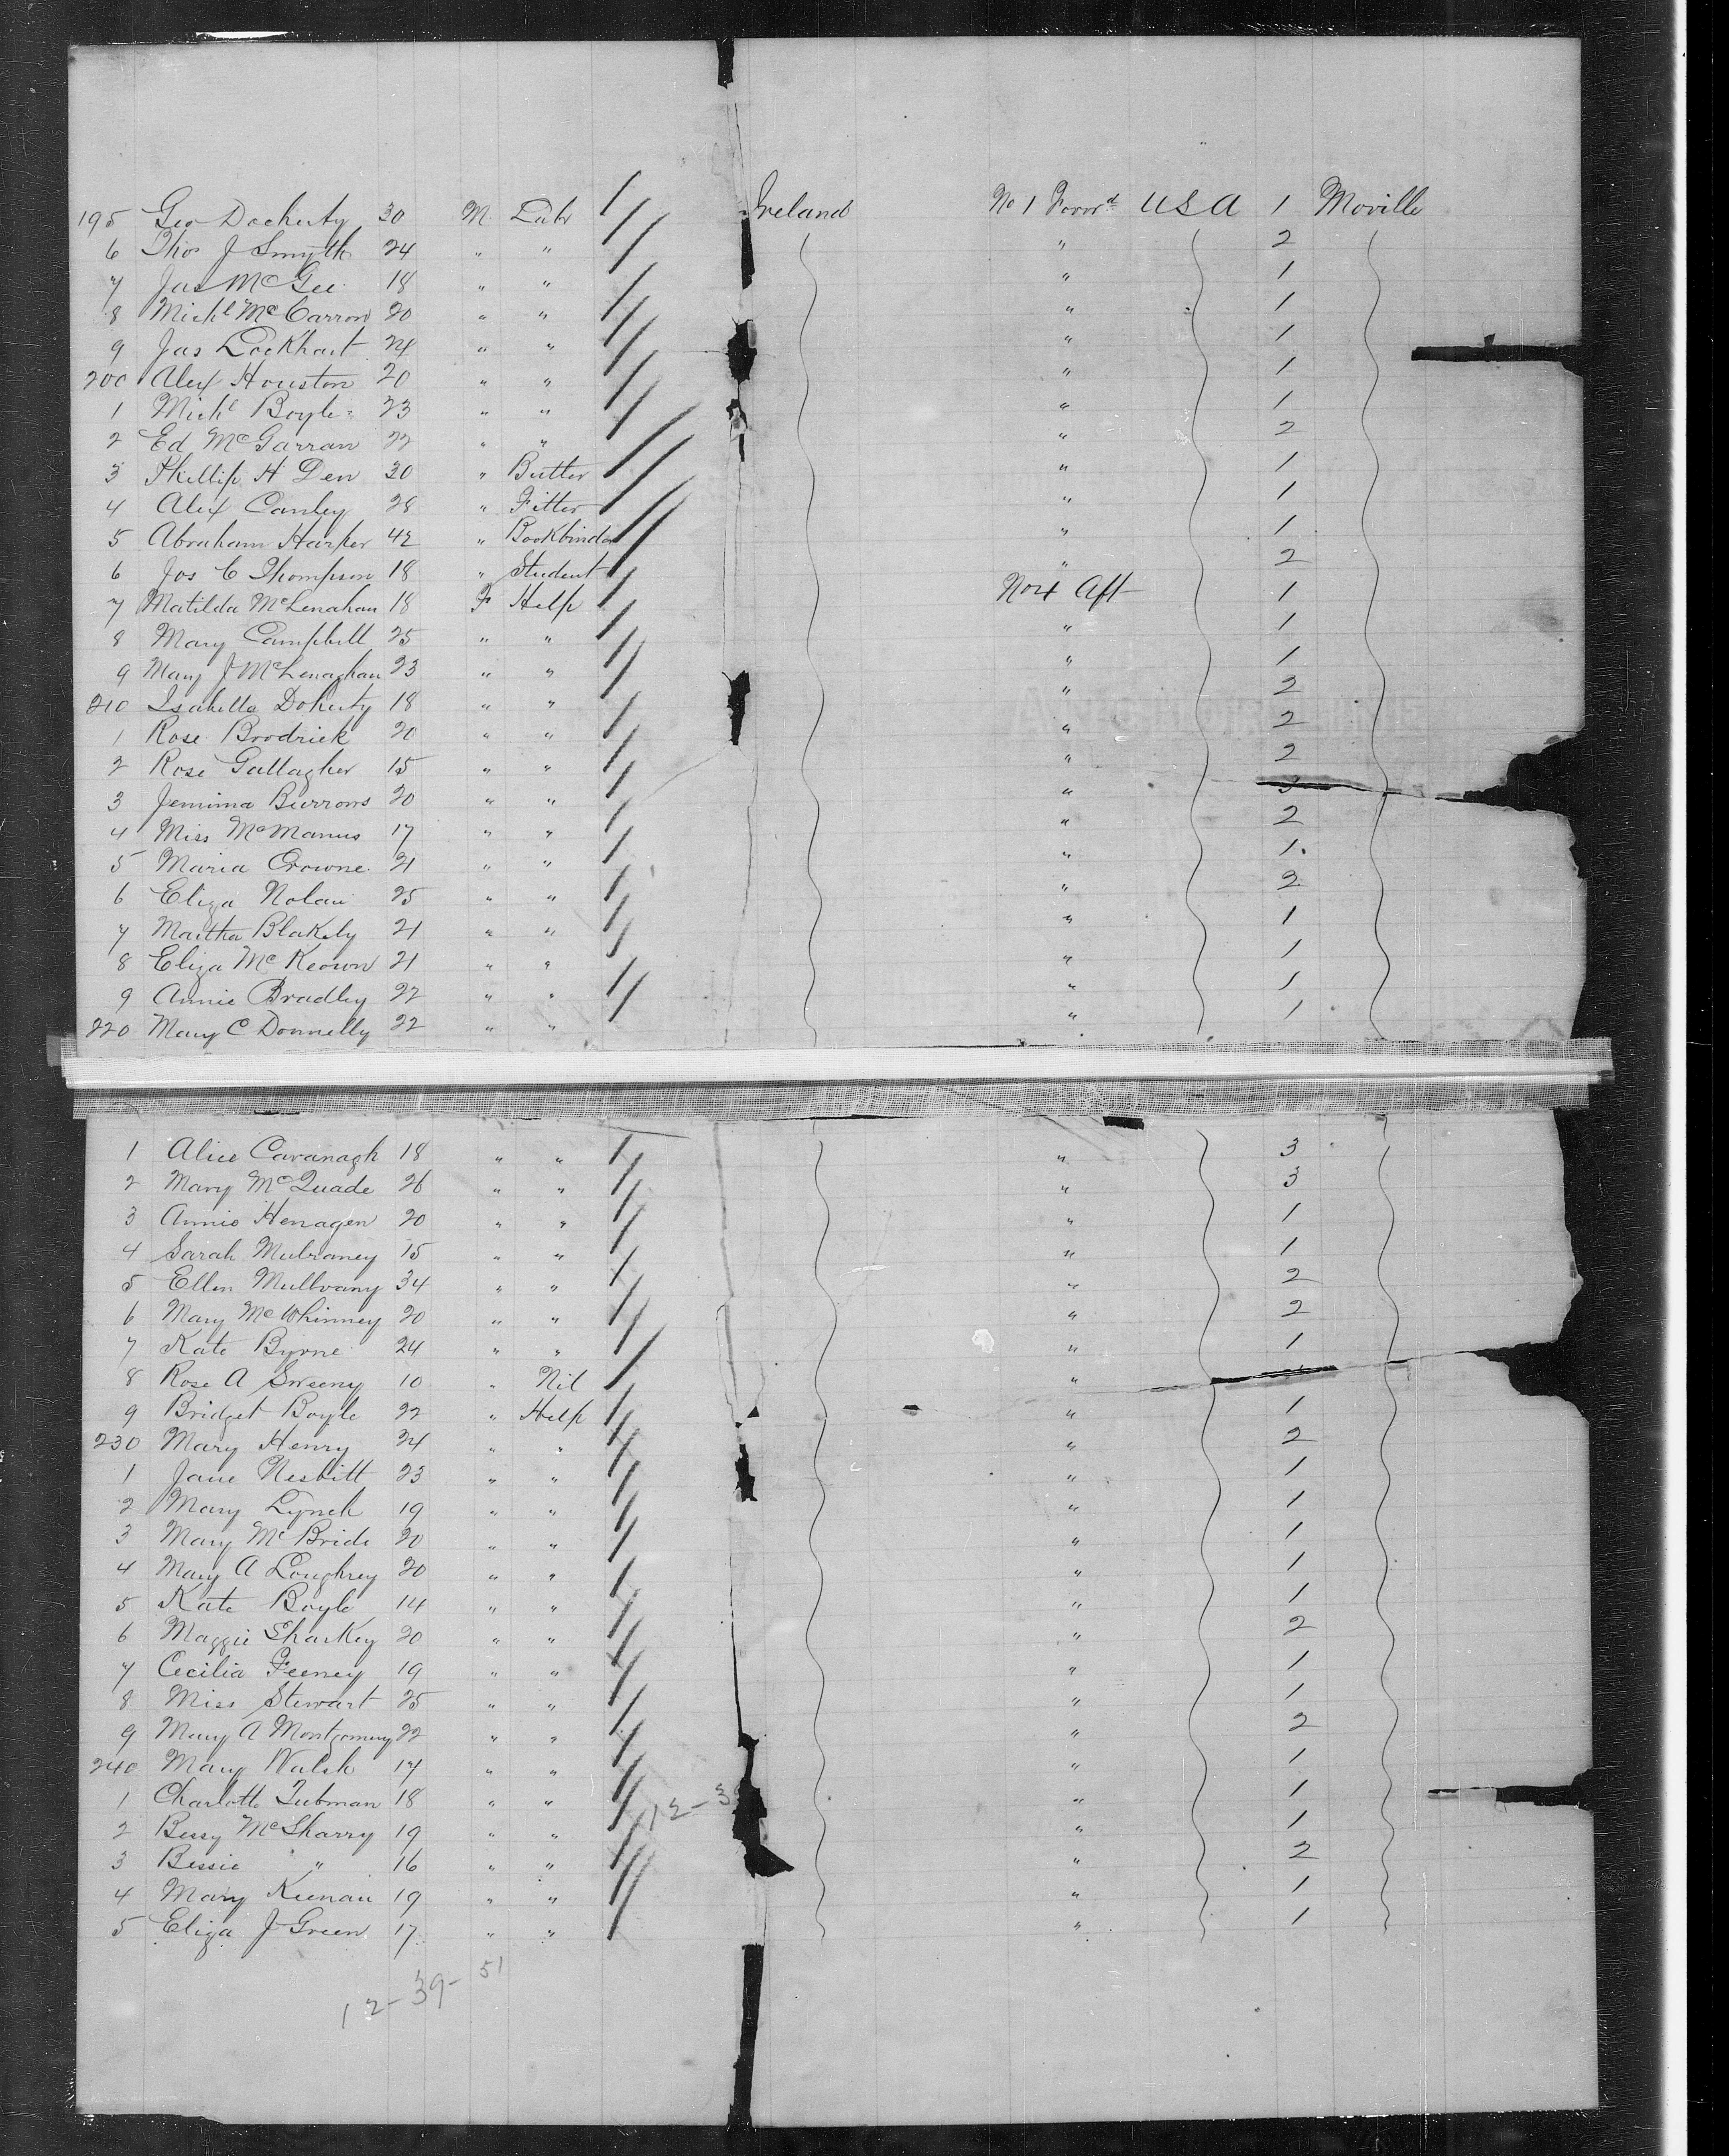 195 Geo Docherty 30 M Labr Ireland No 1 Forwd USA 1 Moville
6 Thos J Smyth 24 " " " 2
7 Jas McGee 18 " " " 1
8 Michl McCarron 20 " " " 1
9 Jas Lockhart 24 " " " 1
200 Alex Houston 20 " " " 1
1 Michl Boyle 23 " " " 1
2 Ed McGarran 22 " " " 2
3 Phillip H Den 30 " Butler " 1
4 Alex Canley 28 " Fitter " 1
5 Abraham Harper 42 " Bookbinder " 1
6 Jos C Thompson 18 " Student " 2
7 Matilda McLenahan 18 F Help No 4 Aft 1
8 Mary Campbell 25 " " " 1
9 Mary J McLenaghan 23 " " " 1
210 Isabella Doherty 18 " " " 2
1 Rose Brodrick 20 " " " 2
2 Rose Gallagher 15 " " " 2
3 Jemima Burrows 20 " " " 3
4 Miss McManus 17 " " " 2
5 Maria Crowne 21 " " " 1
6 Eliza Nolan 25 " " " 2
7 Martha Blakely 21 " " " 1
8 Eliza McKeown 21 " " " 1
9 Annie Bradley 22 " " " 1
220 Mary C Donnelly 22 " " " 1
1 Alice Cavanagh 18 " " " 3
2 Mary McQuade 26 " " " 3
3 Annie Henagen 20 " " " 1
4 Sarah Mulraney 15 " " " 1
5 Ellen Mullvany 34 " " " 2
6 Mary McWhinney 20 " " " 2
7 Kate Byrne 24 " " " 1
8 Rose A Sweeny 10 " Nil "
9 Bridget Boyle 22 " Help " 1
230 Mary Henry 24 " " " 2
1 Jane Nesbitt 23 " " " 1
2 Mary Lynch 19 " " " 1
3 Mary McBride 20 " " " 1
4 Mary A Loughrey 20 " " " 1
5 Kate Boyle 14 " " " 1
6 Maggie Sharkey 20 " " " 2
7 Cecilia Feeney 19 " " " 1
8 Miss Stewart 25 " " " 1
9 Mary A Montgomery 22 " " " 2
240 Mary Walsh 17 " " " 1
1 Charlotte Tubman 18 " " 12-3 " 1
2 Bessy McSharry 19 " " " 1
3 Bessie " 16 " " " 2
4 Mary Keenan 19 " " " 1
5 Eliza J Green 17 " " " 1
12-39-51